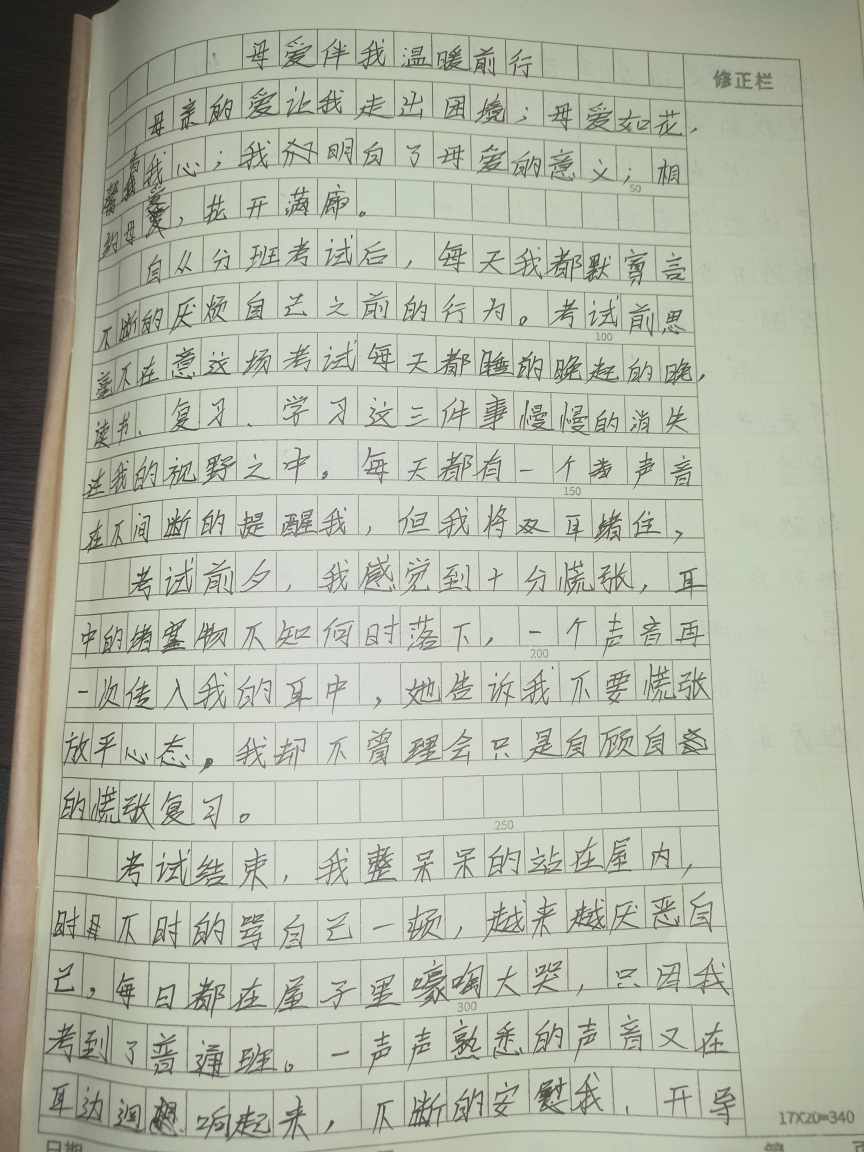 母爱伴我温暖前行
修正栏
母亲的爱让我走出困境；母爱如花，
我心；我才明白了母爱的意义；相
约母爱，花开满廊。
50
自从分班考试后，每天我都默寡言
不断的厌烦自己之前的行为。考试前思
100
毫不在意这场考试每天都睡的晚起的晚，
读书、复习、学习这三件事慢慢的消失
在我的视野之中。每天都有一个声音
150
在不间断的提醒我，但我将双耳绪住，
考试前夕，我感觉到十分慌张，耳
中的绪塞物不知何时落下，一个声音再
200
一次传入我的耳中，她告诉我不要慌张
放平心态。我却不曾理会只是自顾自
的慌张复习。
250
考试结束，我整呆呆的站在屋内，
时不时的骂自己一顿，越来越厌恶自
己，每日都在屋子里嚎啕大哭，只因我
300
考到了普通班。一声声熟悉的声音又在
耳边迴响起来，不断的安慰我、开导
17X20=340
日期
第 页